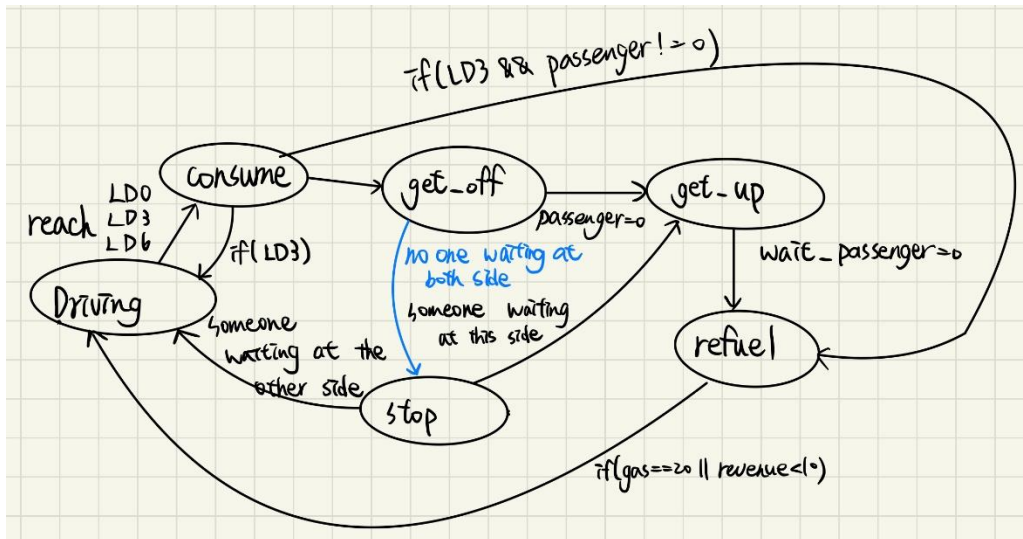 if(LD3 && passenger!=0)
consume
get_off
get_up
reach
LD0
LD3
LD6
if(LD3)
passenger=0
wait_passenger=0
no one waiting at
both side
Driving
someone
waiting at the
other side
someone waiting
at this side
refuel
stop
if(gas==20 || revenue<10)